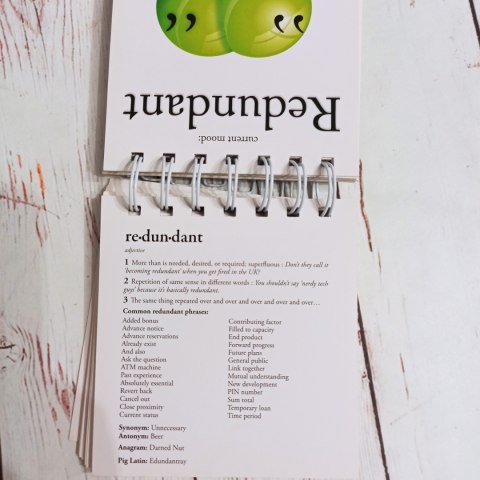 Redundant
current mood:
re•dun•dant
adjective
1 More than is needed, desired, or required; superfluous : Don't they call it
'becoming redundant' when you get fired in the UK?
2 Repetition of same sense in different words : You shouldn't say 'nerdy tech
guys' because it's basically redundant.
3 The same thing repeated over and over and over and over and over…
Common redundant phrases:
Added bonus
Advance notice
Advance reservations
Already exist
And also
Ask the question
ATM machine
Past experience
Absolutely essential
Revert back
Cancel out
Close proximity
Current status
Contributing factor
Filled to capacity
End product
Forward progress
Future plans
General public
Link together
Mutual understanding
New development
PIN number
Sum total
Temporary loan
Time period
Synonym: Unnecessary
Antonym: Beer
Anagram: Darned Nut
Pig Latin: Edundantray